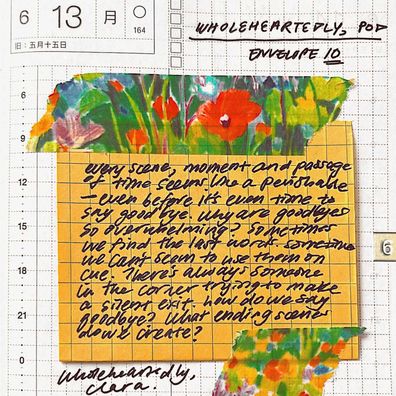 6 13 月
164
旧：五月十五日
WHOLEHEARTEDLY, POD
ENVELOPE 10
6
9
12
15
18
21
0
6
every scene, moment and passage
of time seems like a perishable
— even before it's even time to
say goodbye. Why are goodbyes
so overwhelming? Sometimes
we find the last words. Sometimes
we can't seem to use them on
cue. There's always someone
in the corner trying to make
a silent exit. How do we say
goodbye? What ending scenes
do we create?
Wholeheartedly,
Clara.